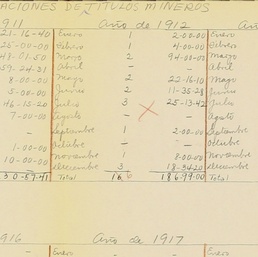 ACIONES DE TITULOS MINEROS
911 Año de 1912 Añ
21-16-40 Enero 1 2-00-00 Enero
25-00-00 Febrero 1 4-00-00 Febrero
Marzo 2 94-00-00 Marzo
59-24-01 Abril - - Abril
8-00-00 Mayo 2 22-16-10 Mayo
5-00-00 Junio 2 11-35-28 Junio
46-15-20 Julio 3 25-13-42 Julio
7-00-00 Agosto - - Agosto
- Septiembre 1 2-00-00 Septiembre
1-00-00 Octubre - - Octubre
10-00-00 Noviembre 1 8-00-00 Noviembre
- Diciembre 3 18-34-20 Diciembre
30-57-41 Total 16 186-99-00 Total
916 Año de 1917
Enero Enero